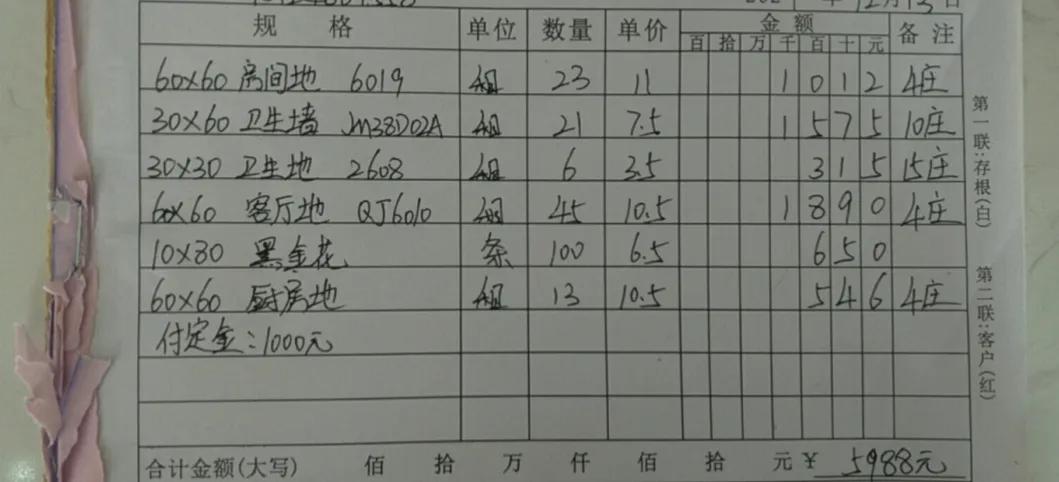 12月13日
规 格 单位 数量 单价 金额 备注
百 拾 万 千 百 十 元
60×60 房间地 6019 组 23 11 1 0 1 2 4庄
30×60 卫生墙 JM38D02A 组 21 7.5 1 5 7 5 10庄
30×30 卫生地 2608 组 6 3.5 3 1 5 15庄
60×60 客厅地 QJ6010 组 45 10.5 1 8 9 0 4庄
10×80 黑金花 条 100 6.5 6 5 0
60×60 厨房地 组 13 10.5 5 4 6 4庄
付定金:1000元
合计金额(大写) 佰 拾 万 仟 佰 拾 元 ¥ 5988元
第一联:存根(白)
第二联:客户(红)